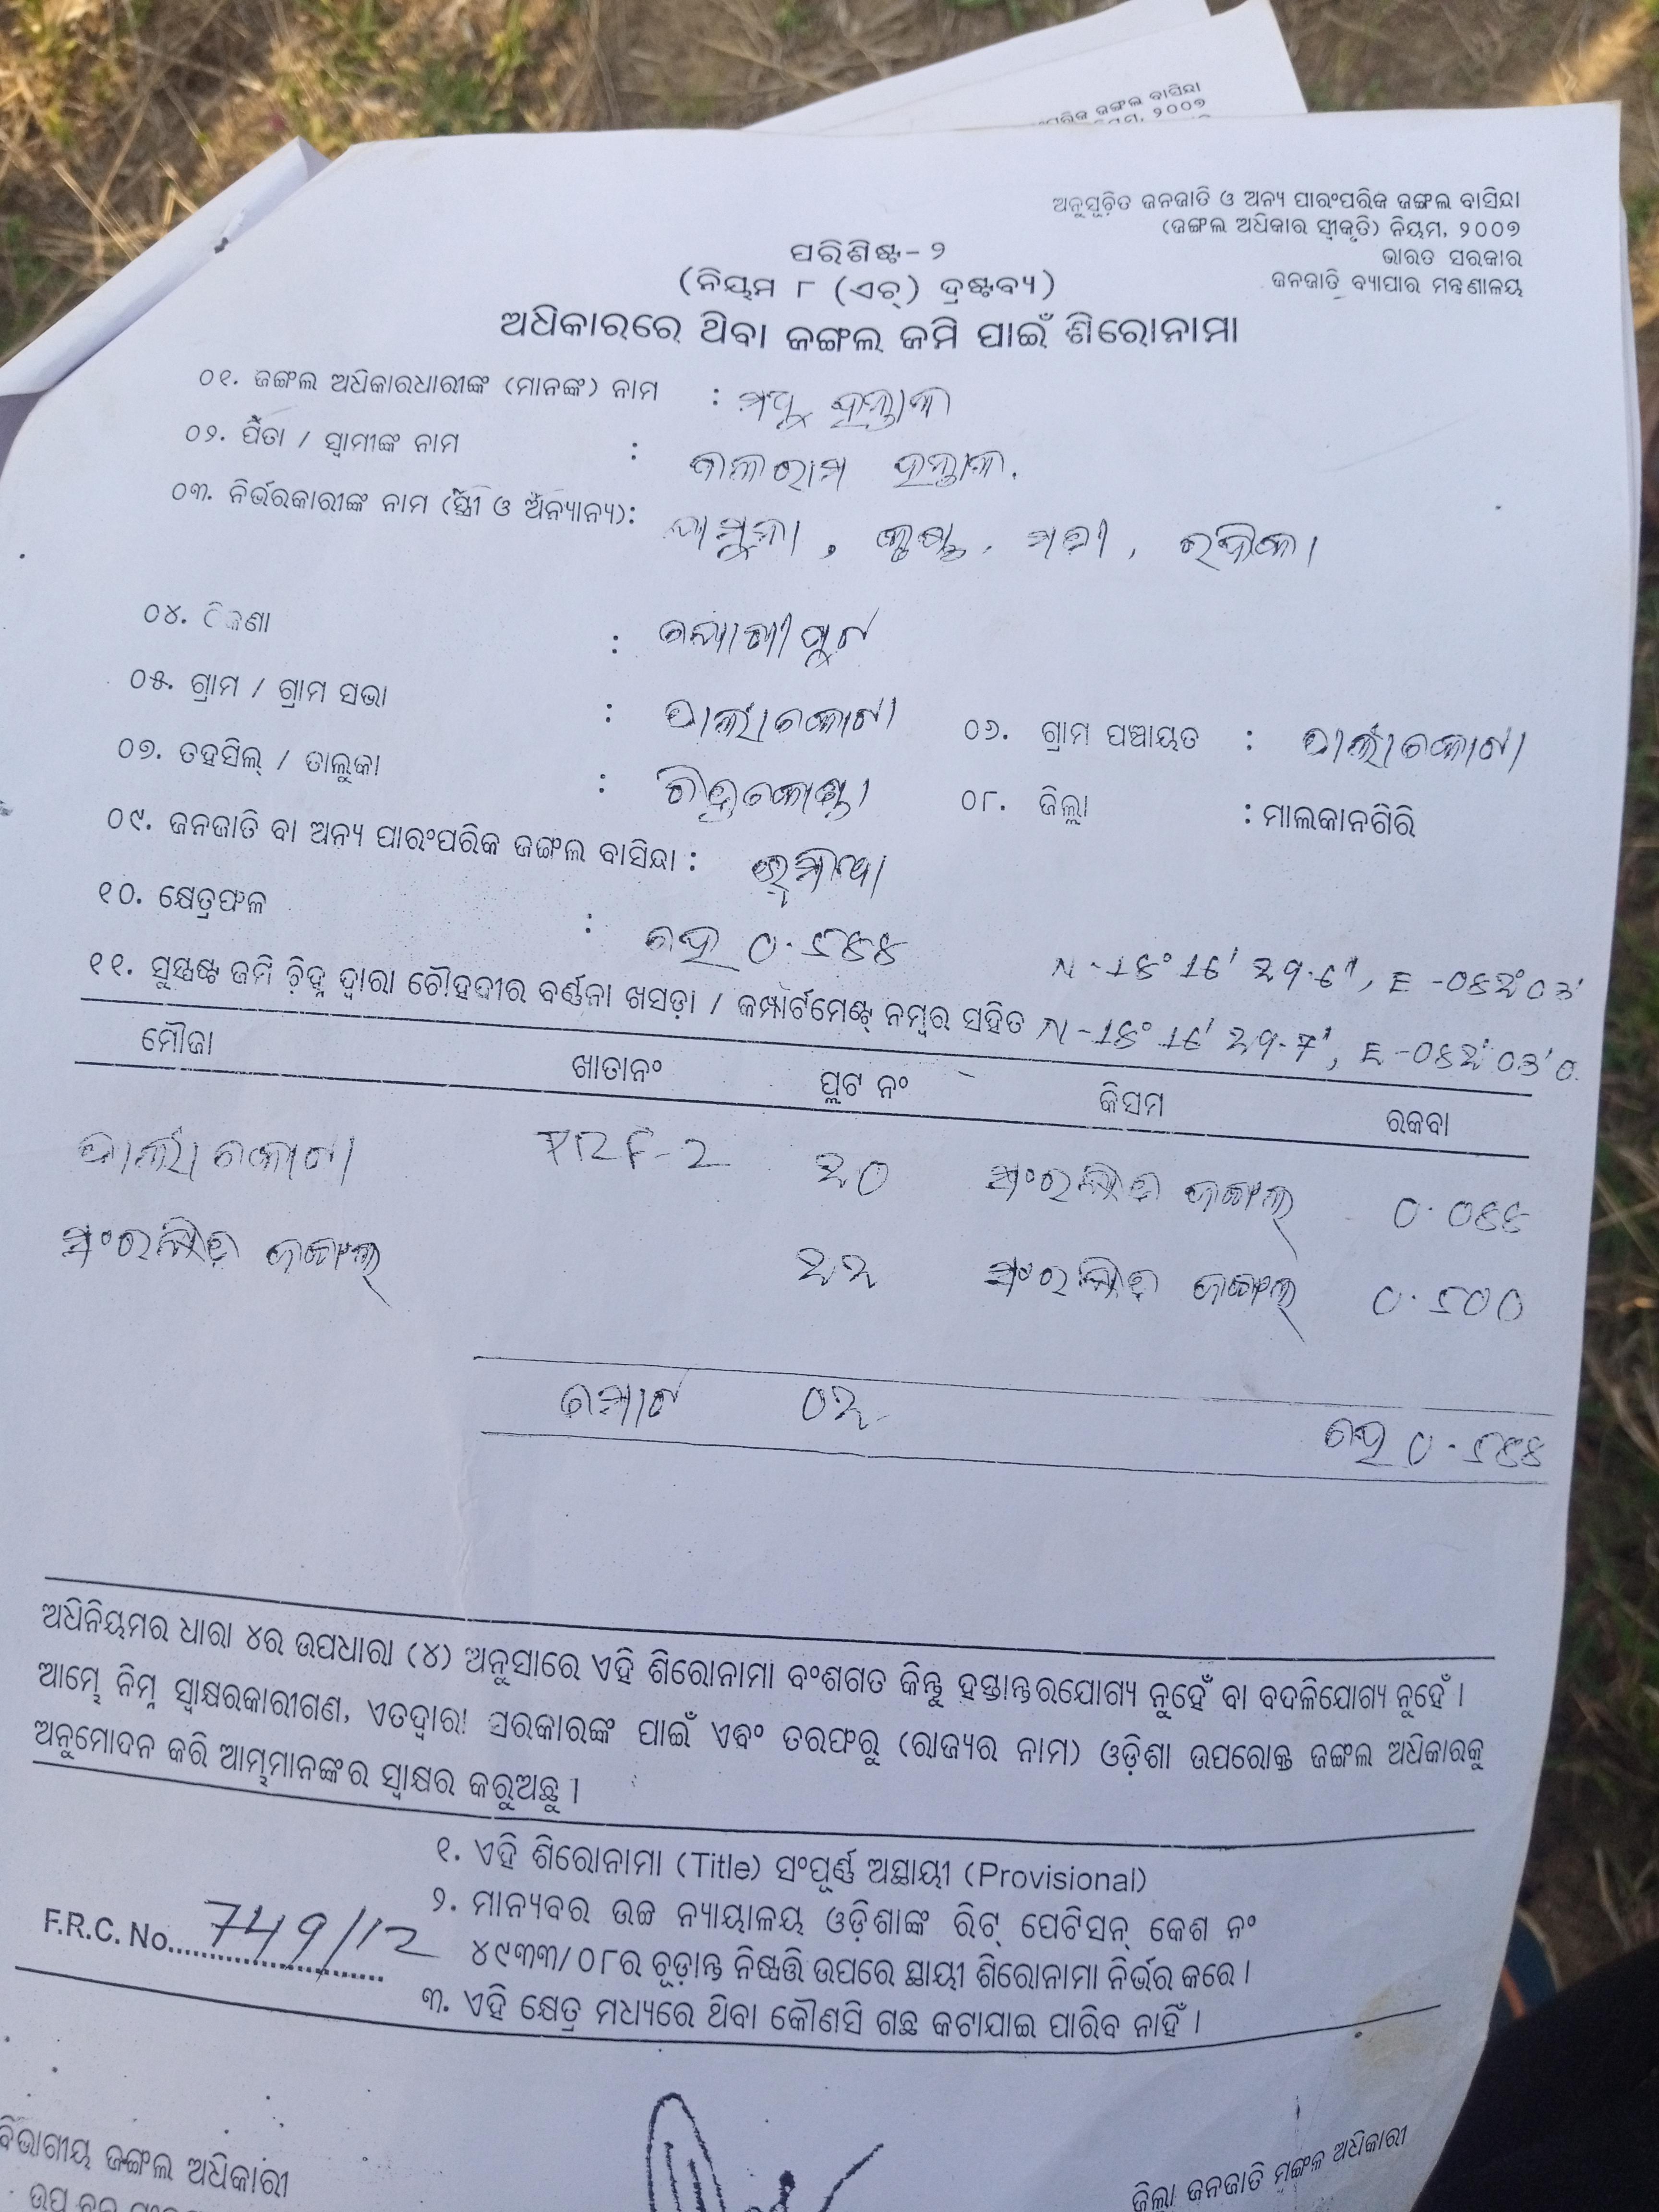 ଂପରିକ ଜଙ୍ଗଲ ବାସିନ୍ଦା
ଅନୁସୂଚିତ ଜନଜାତି ଓ ଅନ୍ୟ ପାରଂପରିକ ଜଙ୍ଗଲ ବାସିନ୍ଦା
(ଜଙ୍ଗଲ ଅଧିକାର ସ୍ୱୀକୃତି) ନିୟମ, ୨୦୦୭
ଭାରତ ସରକାର
ଜନଜାତି ବ୍ୟାପାର ମନ୍ତ୍ରଣାଳୟ
ପରିଶିଷ୍ଟ-୨
(ନିୟମ ୮ (ଏଚ୍) ଦ୍ରଷ୍ଟବ୍ୟ)
ଅଧିକାରରେ ଥିବା ଜଙ୍ଗଲ ଜମି ପାଇଁ ଶିରୋନାମା
୦୧. ଜଙ୍ଗଲ ଅଧିକାରଧାରୀଙ୍କ (ମାନଙ୍କ) ନାମ : ମଧୁ ହନ୍ତାଳ
୦୨. ପିତା / ସ୍ୱାମୀଙ୍କ ନାମ : ବଳରାମ ହନ୍ତାଳ.
୦୩. ନିର୍ଭରକାରୀଙ୍କ ନାମ (ସ୍ତ୍ରୀ ଓ ଅନ୍ୟାନ୍ୟ):
୦୪. ଠିକଣା :
୦୫. ଗ୍ରାମ / ଗ୍ରାମ ସଭା : ୦୬. ଗ୍ରାମ ପଞ୍ଚାୟତ :
୦୭. ତହସିଲ୍ / ତାଲୁକା : ଚିତ୍ରକୋଣ୍ଡା ୦୮. ଜିଲ୍ଲା : ମାଲକାନଗିରି
୦୯. ଜନଜାତି ବା ଅନ୍ୟ ପାରଂପରିକ ଜଙ୍ଗଲ ବାସିନ୍ଦା : ଭୂମିଆ
୧୦. କ୍ଷେତ୍ରଫଳ : ହେ ୦.୫୪୪
N-18° 16' 29.6", E-082° 03'
୧୧. ସୁସ୍ପଷ୍ଟ ଜମି ଚିହ୍ନ ଦ୍ୱାରା ଚୌହଦୀର ବର୍ଣ୍ଣନା ଖସଡ଼ା / କମ୍ପାର୍ଟମେଣ୍ଟ୍ ନମ୍ବର ସହିତ N-18° 16' 29.7", E-082° 03' 0
ମୌଜା ଖାତାନଂ ପ୍ଲଟ ନଂ କିସମ ରକବା
PRF-2 ୨୦ ସଂରକ୍ଷିତ ଜଙ୍ଗଲ୍ ୦.୦୪୪
ସଂରକ୍ଷିତ ଜଙ୍ଗଲ୍ ୨୨ ସଂରକ୍ଷିତ ଜଙ୍ଗଲ୍ ୦.୫୦୦
ମୋଟ ୦୨ ହେ ୦.୫୪୪
ଅଧିନିୟମର ଧାରା ୪ର ଉପଧାରା (୪) ଅନୁସାରେ ଏହି ଶିରୋନାମା ବଂଶଗତ କିନ୍ତୁ ହସ୍ତାନ୍ତରଯୋଗ୍ୟ ନୁହେଁ ବା ବଦଳିଯୋଗ୍ୟ ନୁହେଁ ।
ଆମ୍ଭେ ନିମ୍ନ ସ୍ୱାକ୍ଷରକାରୀଗଣ, ଏତଦ୍ୱାରା ସରକାରଙ୍କ ପାଇଁ ଏବଂ ତରଫରୁ (ରାଜ୍ୟର ନାମ) ଓଡ଼ିଶା ଉପରୋକ୍ତ ଜଙ୍ଗଲ ଅଧିକାରକୁ
ଅନୁମୋଦନ କରି ଆମ୍ଭମାନଙ୍କର ସ୍ୱାକ୍ଷର କରୁଅଛୁ ।
୧. ଏହି ଶିରୋନାମା (Title) ସଂପୂର୍ଣ୍ଣ ଅସ୍ଥାୟୀ (Provisional)
୨. ମାନ୍ୟବର ଉଚ୍ଚ ନ୍ୟାୟାଳୟ ଓଡ଼ିଶାଙ୍କ ରିଟ୍ ପେଟିସନ୍ କେଶ ନଂ
୪୯୩୩/୦୮ର ଚୂଡ଼ାନ୍ତ ନିଷ୍ପତ୍ତି ଉପରେ ସ୍ଥାୟୀ ଶିରୋନାମା ନିର୍ଭର କରେ ।
F.R.C. No. 749/12
୩. ଏହି କ୍ଷେତ୍ର ମଧ୍ୟରେ ଥିବା କୌଣସି ଗଛ କଟାଯାଇ ପାରିବ ନାହିଁ ।
ବିଭାଗୀୟ ଜଙ୍ଗଲ ଅଧିକାରୀ
ଜିଲା ଜନଜାତି ମଙ୍ଗଳ ଅଧିକାରୀ